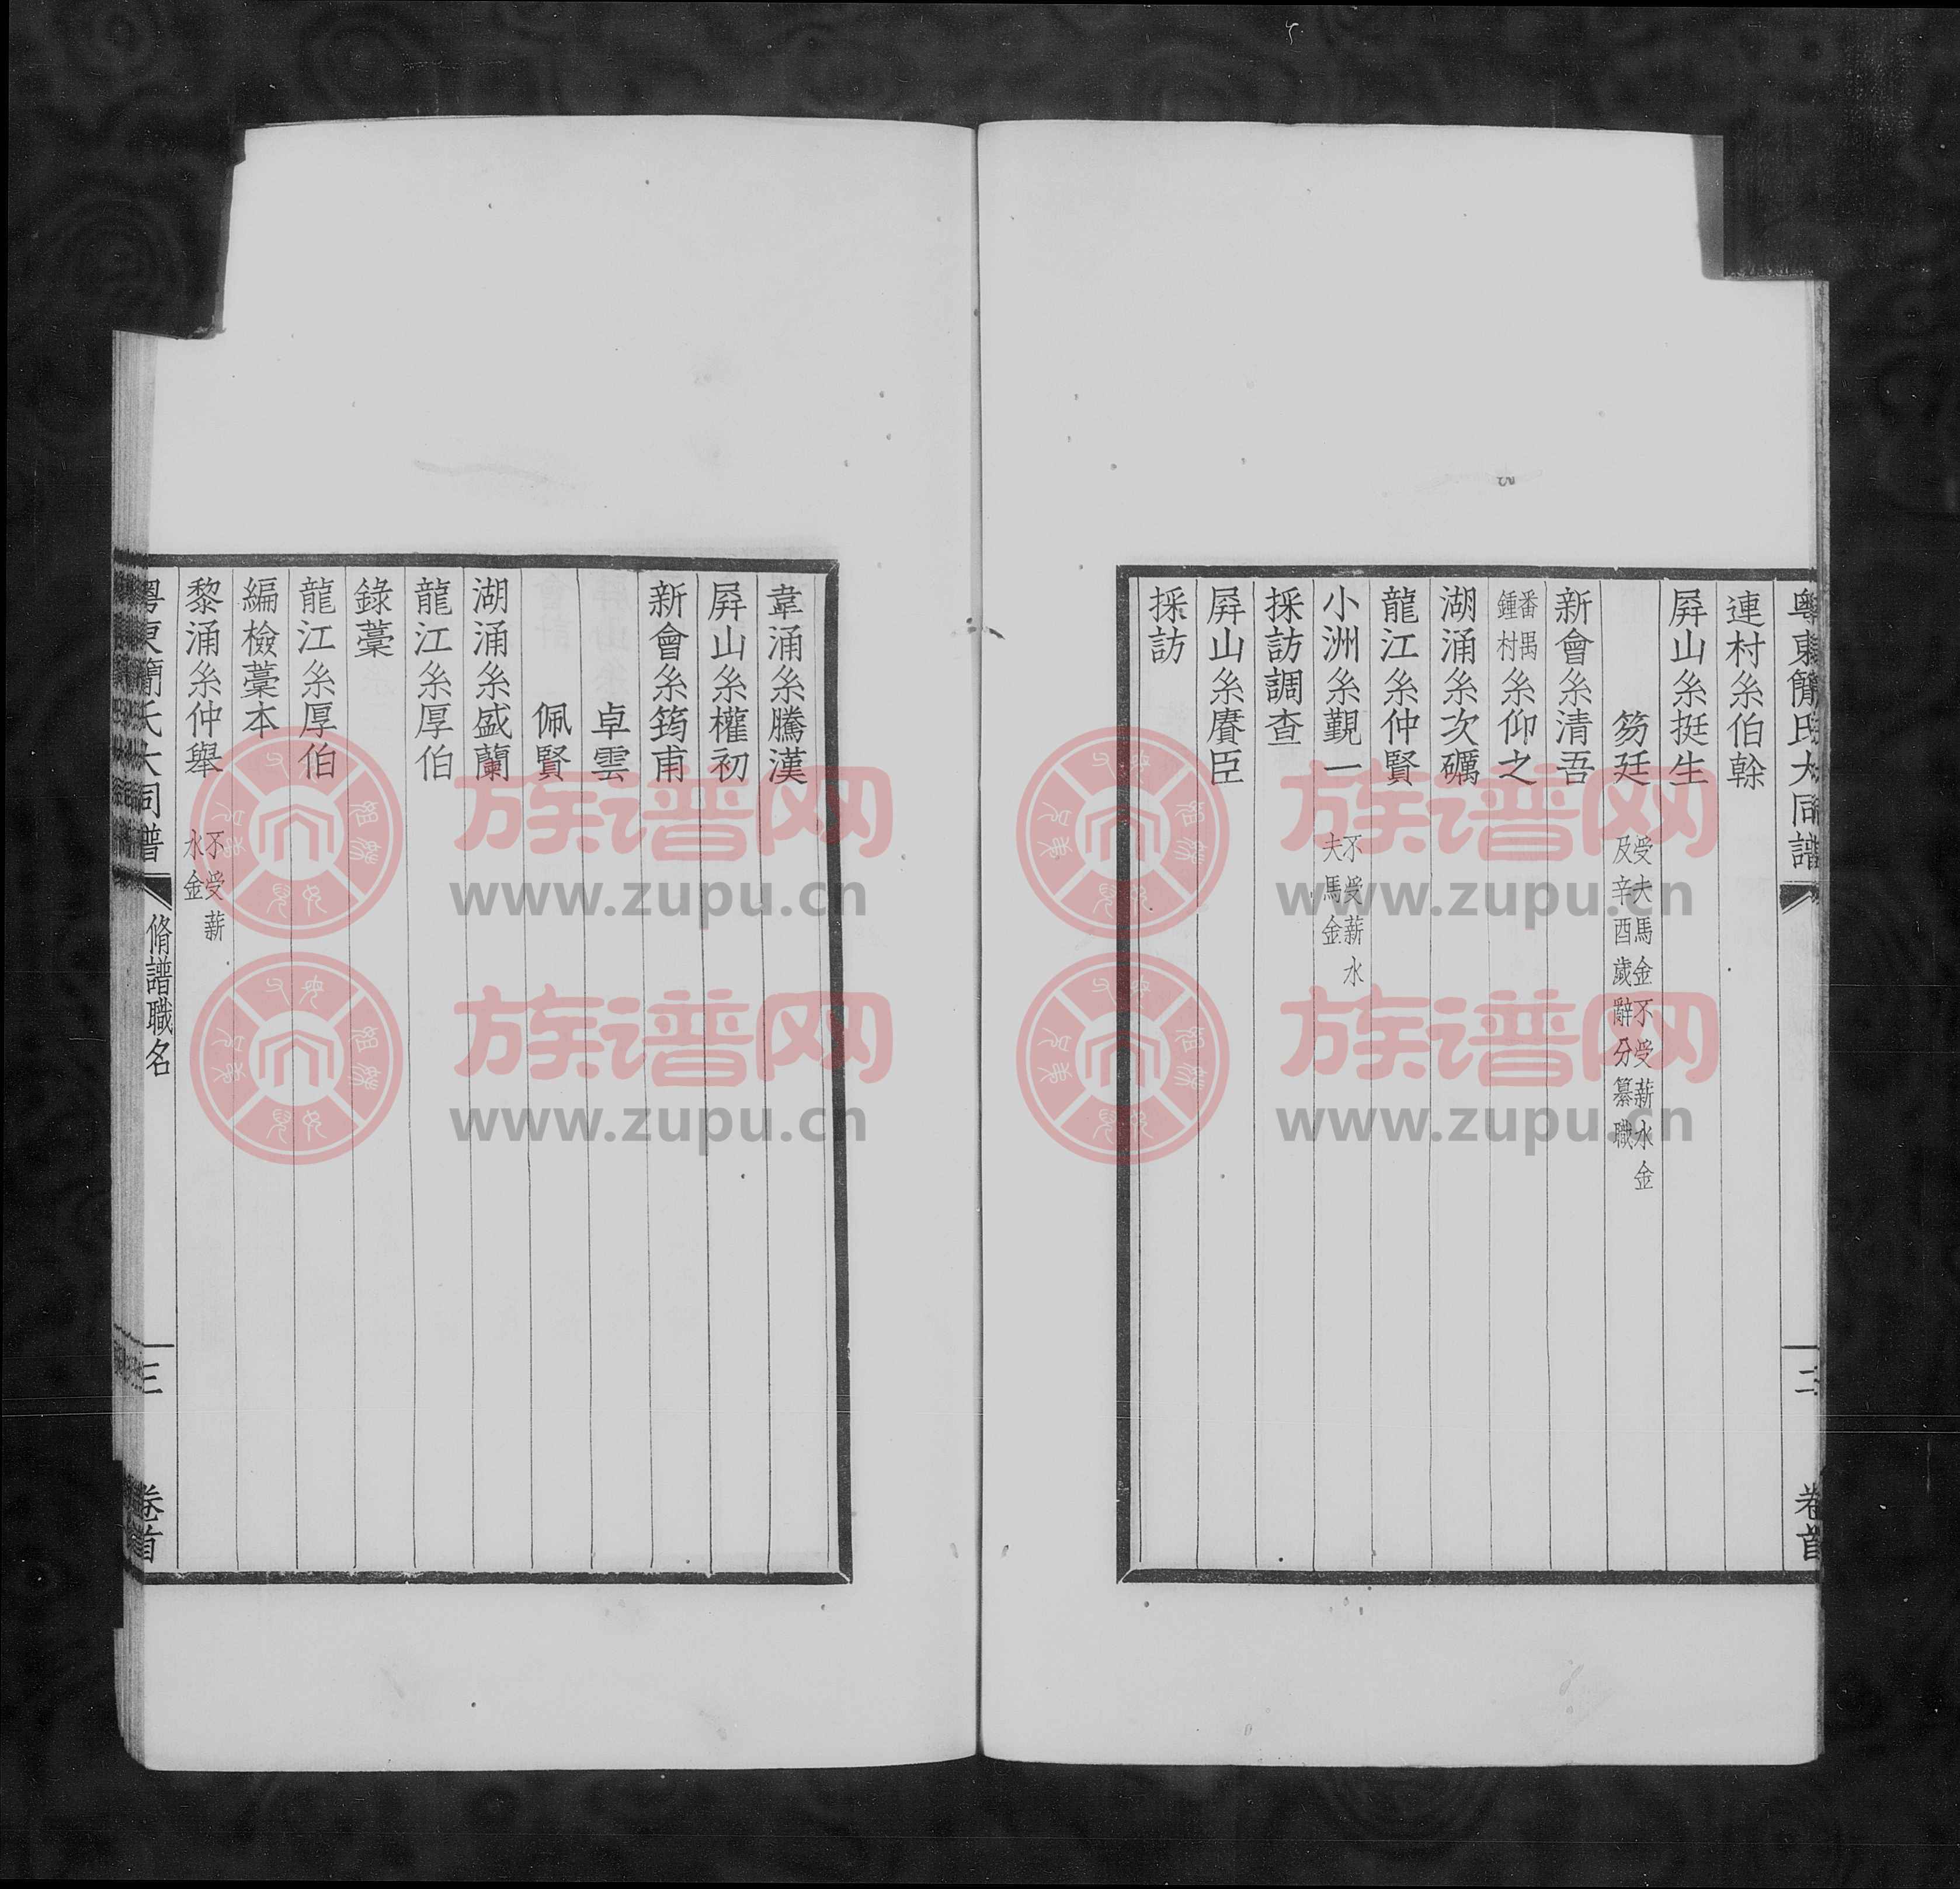 粵東簡氏大同譜
二
卷首
連村糸伯榦
屛山糸挺生
笏廷 受夫馬金不受薪水金
及辛酉歲辭分纂職
新會糸清吾
番禺鍾村糸仰之
湖涌糸次礪
龍江糸仲賢
小洲糸覲一 不受薪水
夫馬金
採訪調查
屛山糸賡臣
採訪
韋涌糸騰漢
屛山糸權初
新會糸筠甫
卓雲
佩賢
湖涌糸盛蘭
龍江糸厚伯
錄藁
龍江糸厚伯
編檢藁本
黎涌糸仲舉 不受薪
水金
粵東簡氏大同譜
脩譜職名
三
卷首
族谱网
www.zupu.cn
族谱网
www.zupu.cn
族谱网
www.zupu.cn
族谱网
www.zupu.cn